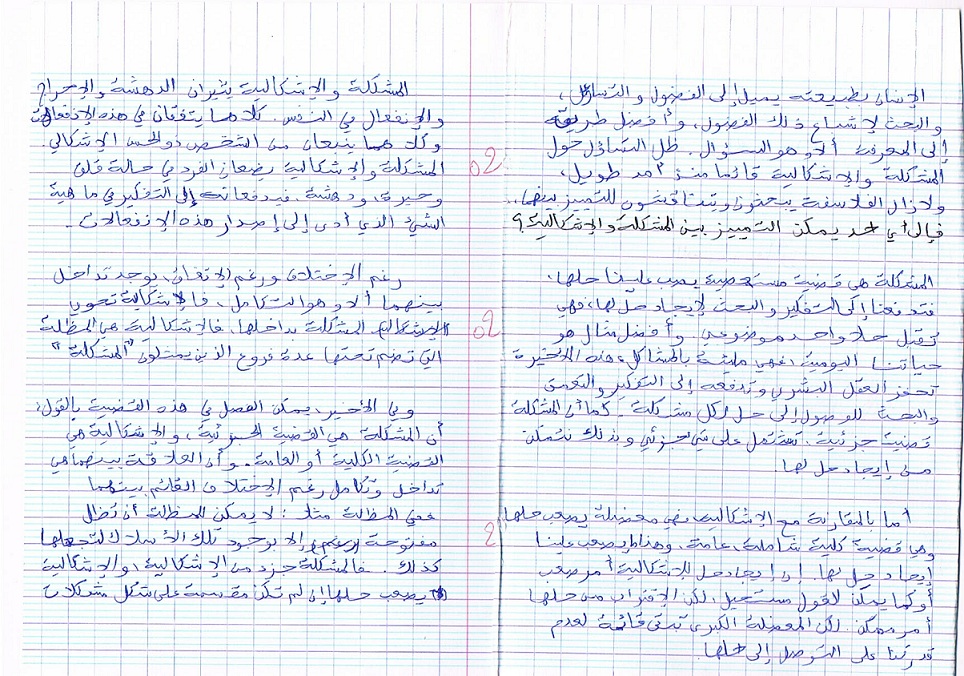 الإنسان بطبيعته يميل إلى الفضول والتساؤل،
والبحث لإشباع ذلك الفضول، وأفضل طريقة
إلى المعرفة ألا وهو السؤال. ظل التساؤل حول
المشكلة والإشكالية قائما منذ أمد طويل،
ولازال الفلاسفة يبحثون ويتناقشون للتمييز بينهما.
فإلى أي حد يمكن التمييز بين المشكلة والإشكالية؟
المشكلة هي قضية مستعصية يصعب علينا حلها،
فتدفعنا إلى التفكير والبحث لإيجاد حل لها، فهي
تقبل حلا واحد موضوعي. وأفضل مثال هو
حياتنا اليومية، فهي مليئة بالمشاكل، هذه الأخيرة
تحفز العقل البشري وتدفعه إلى التفكير والتعمق
والبحث للوصول إلى حل لكل مشكلة. كما أن المشكلة
قضية جزئية، تشتمل على شيء جزئي وبذلك نتمكن
من إيجاد حل لها.
أما بالمقارنة مع الإشكالية، فهي معضلة يصعب حلها
وهي قضية كلية شاملة، عامة، وهذا ما يصعب علينا
إيجاد حل لها. إذا إيجاد حل للإشكالية أمر صعب
أو كما يمكن القول مستحيل، لكن الإقتراب من حلها
أمر ممكن. لكن المعضلة الكبرى تبقى قائمة لعدم
قدرتنا على التوصل إلى حلها.
المشكلة والإشكالية يثيران الدهشة والإحراج
والإنفعال في النفس. كلاهما يتفقان في هذه الإنفعالات
وكلاهما ينبعان من الشخص ذو الحس الإشكالي
المشكلة والإشكالية يضعان الفرد في حالة قلق
وحيرة، ودهشة. فيدفعانه إلى التفكير في ماهية
الشيئ الذي أدى إلى إصدار هذه الإنفعالات.
02
رغم الإختلاف ورغم الإتفاق، يوجد تداخل
بينهما ألا وهو التكامل، فالإشكالية تحوي
المشكلة بداخلها. فالإشكالية هي المظلة
التي تضم تحتها عدة فروع الذين يمثلون "المشكلة"
02
وفي الأخير، يمكن الفصل في هذه القضية بالقول،
أن المشكلة هي القضية الجزئية، والإشكالية هي
القضية الكلية أو العامة. وأن العلاقة بينهما هي
تداخل وتكامل رغم الإختلاف القائم بينهما
ففي المظلة مثلا: لا يمكن للمظلة أن تظل
مفتوحة إلا بوجود تلك الأسلاك لتجعلها
كذلك. فالمشكلة جزء من الإشكالية، والإشكالية
يصعب حلها إن لم تكن مقسمة على شكل مشكلات
2